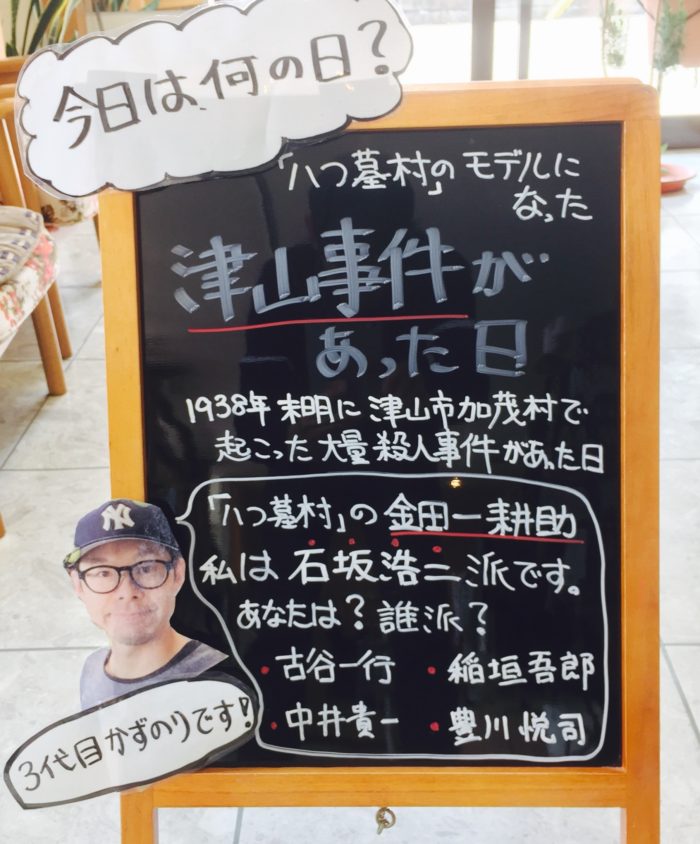 今日は何の日?
「八つ墓村」のモデルに
なった
津山事件が
あった日
1938年 未明に 津山市加茂村で
起こった 大量殺人事件があった日
NY
「八つ墓村」の 金田一耕助
私は 石坂浩二派です。
あなたは?誰派?
・古谷一行 ・稲垣吾郎
・中井貴一 ・豊川悦司
3代目かずのりです!